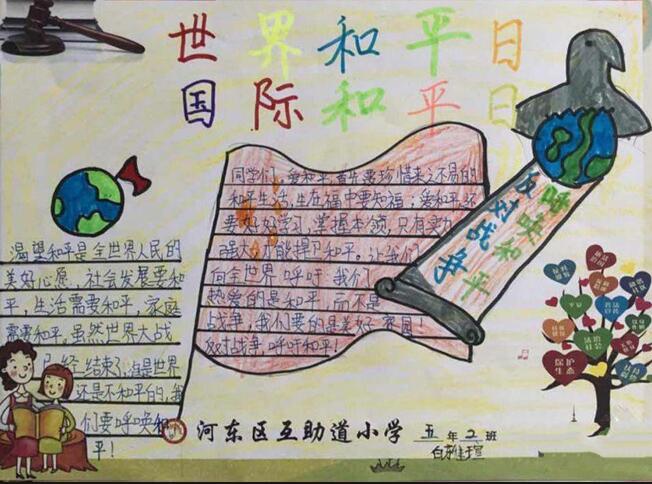 世界和平日
国际和平日
同学们，爱和平，首先要珍惜来之不易的
和平生活，生在福中要知福；爱和平还
要好好学习，掌握本领，只有实力
强大，才能捍卫和平。让我们
向全世界呼吁，我们
热爱的是和平，而不是
战争，我们要的是美好家园！
反对战争，呼吁和平！
呼唤和平
反对战争
渴望和平是全世界人民的
美好心愿，社会发展要和
平，生活需要和平，家庭
需要和平。虽然世界大战
已经结束了，
还是不和平的，我
们要呼唤和
平！
保护
生态
河东区互助道小学 五年2班